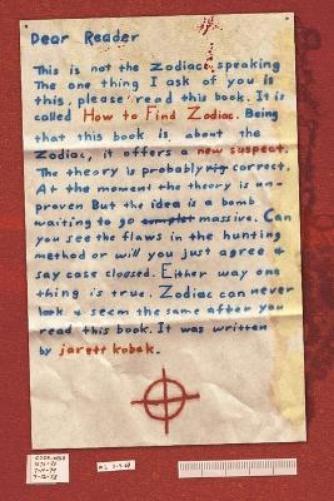 Dear Reader
This is not the Zodiac speaking
The one thing I ask of you is
this, please read this book. It is
called How to Find Zodiac. Being
that this book is, about the
Zodiac, it offers a new suspect.
The theory is probably correct.
At the moment the theory is un-
proven But the idea is a bomb
waiting to go massive. Can
you see the flaws in the hunting
method or will you just agree &
say case cloosed. Either way one
thing is true. Zodiac can never
look & seem the same after you
read this book. It was written
by jarett kobek.